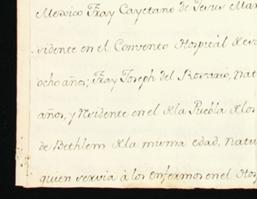 Mexico Fray Cayetano de Jesus Mar
vidente en el Convento Hospital de es
ocho años; Fray Joseph del Rosario, Nat
años, y Residente en el de la Puebla de los
de Bethlem de la misma edad, Natu
quien servia à los enfermos en el Hos